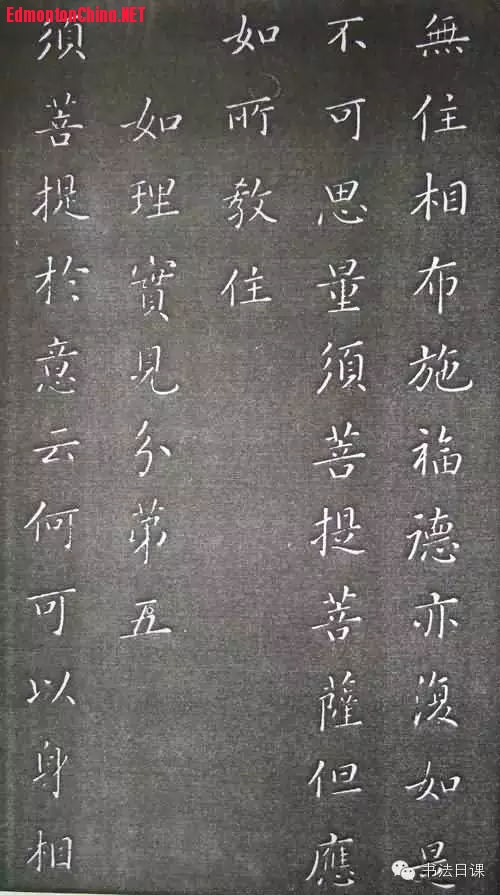 EdmontonChina.NET
無住相布施福德亦復如是
不可思量須菩提菩薩但應
如所教住
如理實見分第五
須菩提於意云何可以身相
书法日课